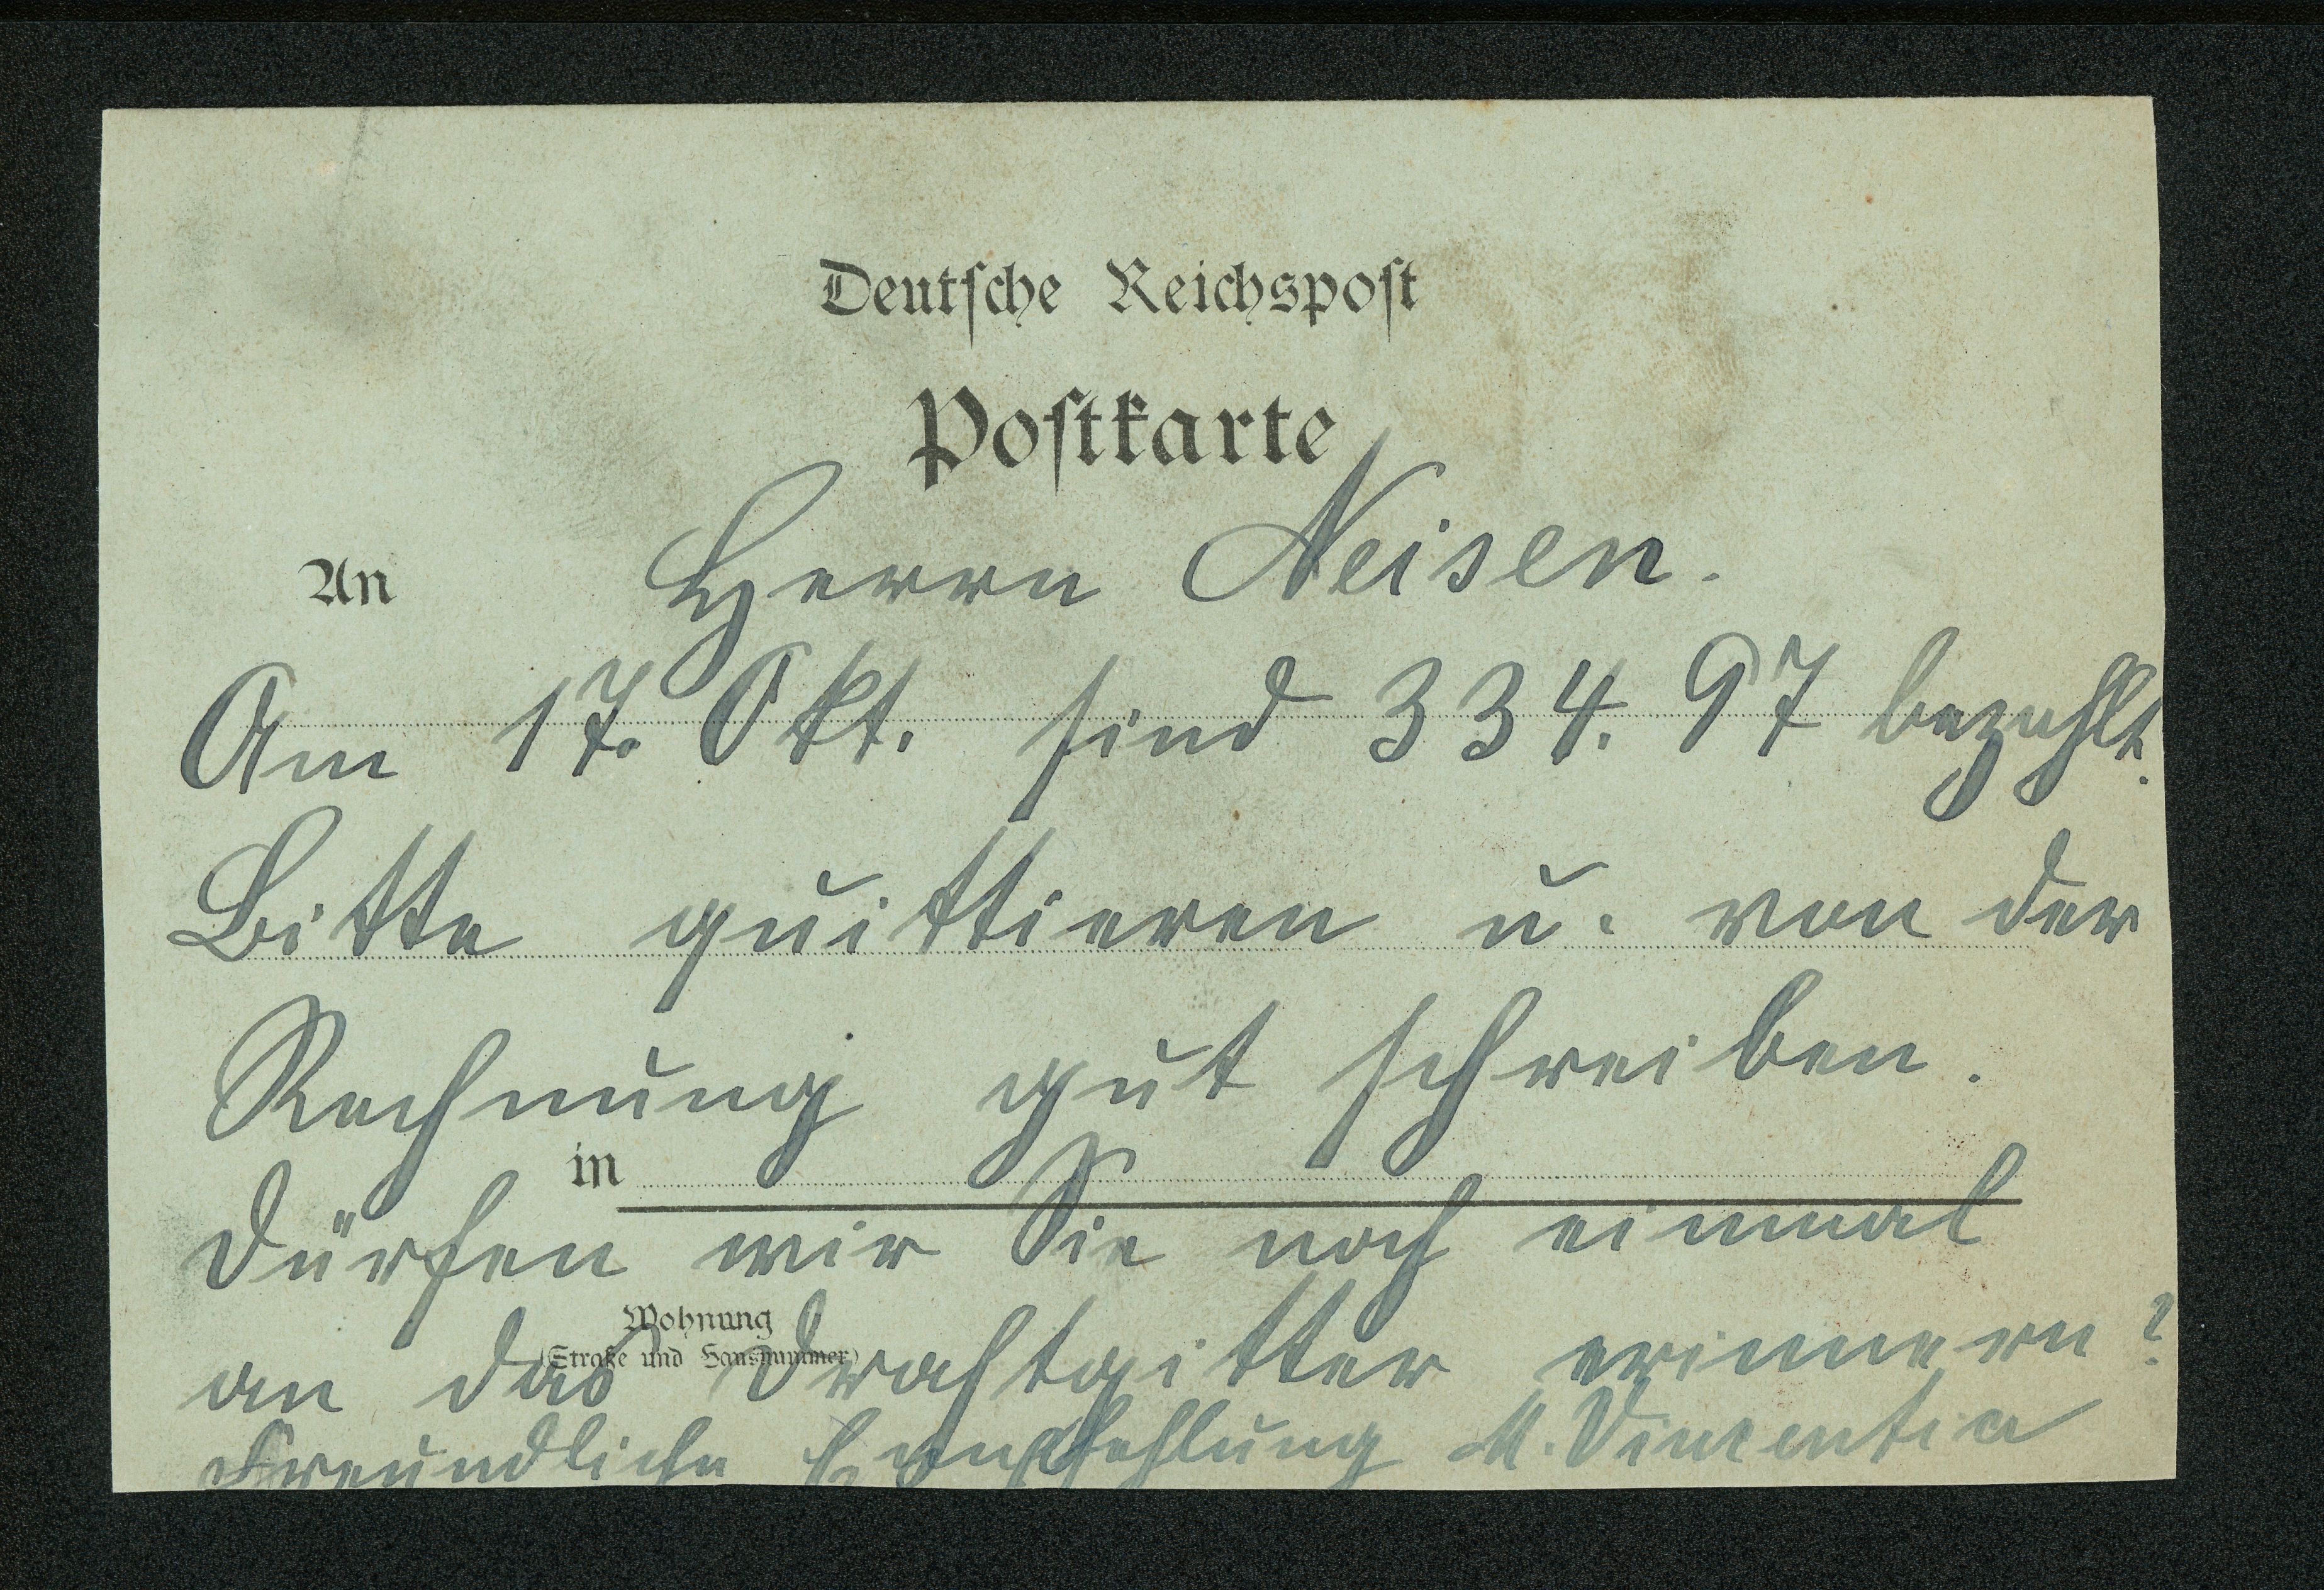 Deutsche Reichspost
Postkarte
An Herrn Neisen.
Am 17. Okt. sind 334.97 bezahlt.
Bitte quittieren u. von der
Rechnung gut schreiben.
in
Dürfen wir Sie noch einmal
Wohnung
(Straße und Hausnummer)
an das Drahtgitter erinnern?
Freundliche Empfehlung M. Vincentia